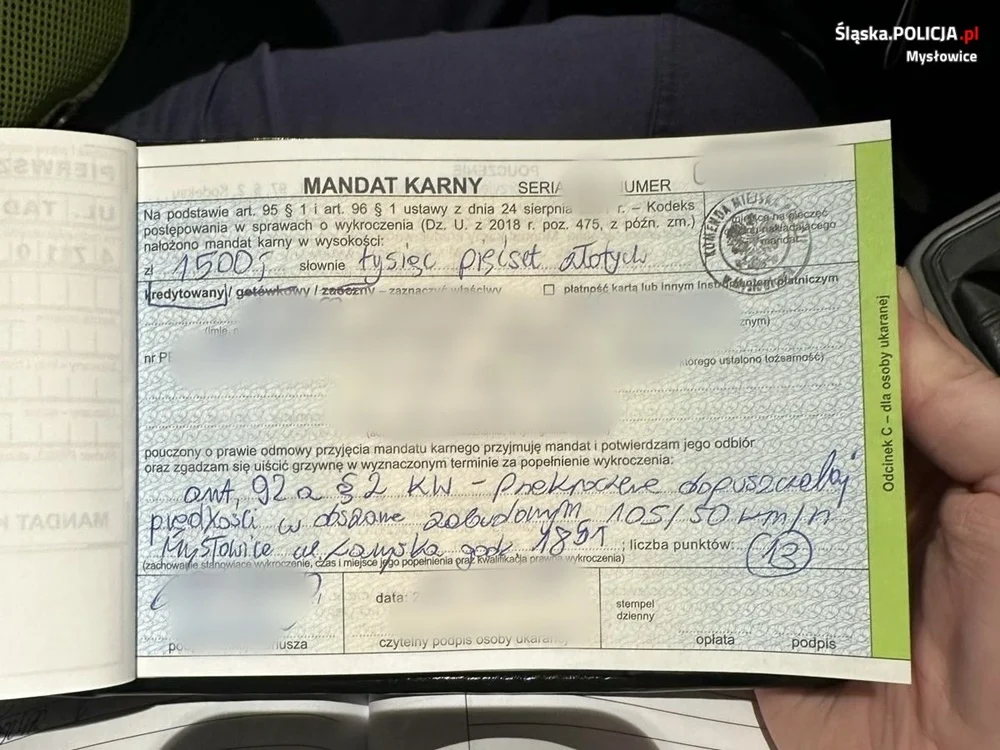 Śląska.POLICJA.pl
Mysłowice
MANDAT KARNY SERIA UMER
Na podstawie art. 95 § 1 i art. 96 § 1 ustawy z dnia 24 sierpnia r. – Kodeks
postępowania w sprawach o wykroczenia (Dz. U. z 2018 r. poz. 475, z późn. zm.)
nałożono mandat karny w wysokości:
zł 1500,- słownie tysiąc pięćset złotych
kredytowany / gotówkowy / zaoczny – zaznaczyć właściwy
płatność kartą lub innym instrumentem płatniczym
znym)
nr PE
którego ustalono tożsamość)
pouczony o prawie odmowy przyjęcia mandatu karnego przyjmuję mandat i potwierdzam jego odbiór
oraz zgadzam się uiścić grzywnę w wyznaczonym terminie za popełnienie wykroczenia:
art. 92a § 2 KW – Przekroczenie dopuszczalnej
prędkości w obszarze zabudowanym 105/50 km/h
Mysłowice ul. godz. 1851 ; liczba punktów: 13
(zachowanie stanowiące wykroczenie, czas i miejsce jego popełnienia oraz kwalifikacja prawna wykroczenia)
data: 2
usza
czytelny podpis osoby ukaran
stempel
dzienny
opłata
podpis
Odcinek C – dla osoby ukaranej
KOMENDA MIEJSKA
miejsce na pieczęć
nakładającego
mandat
PIERWSZ
UL.
MANDAT K